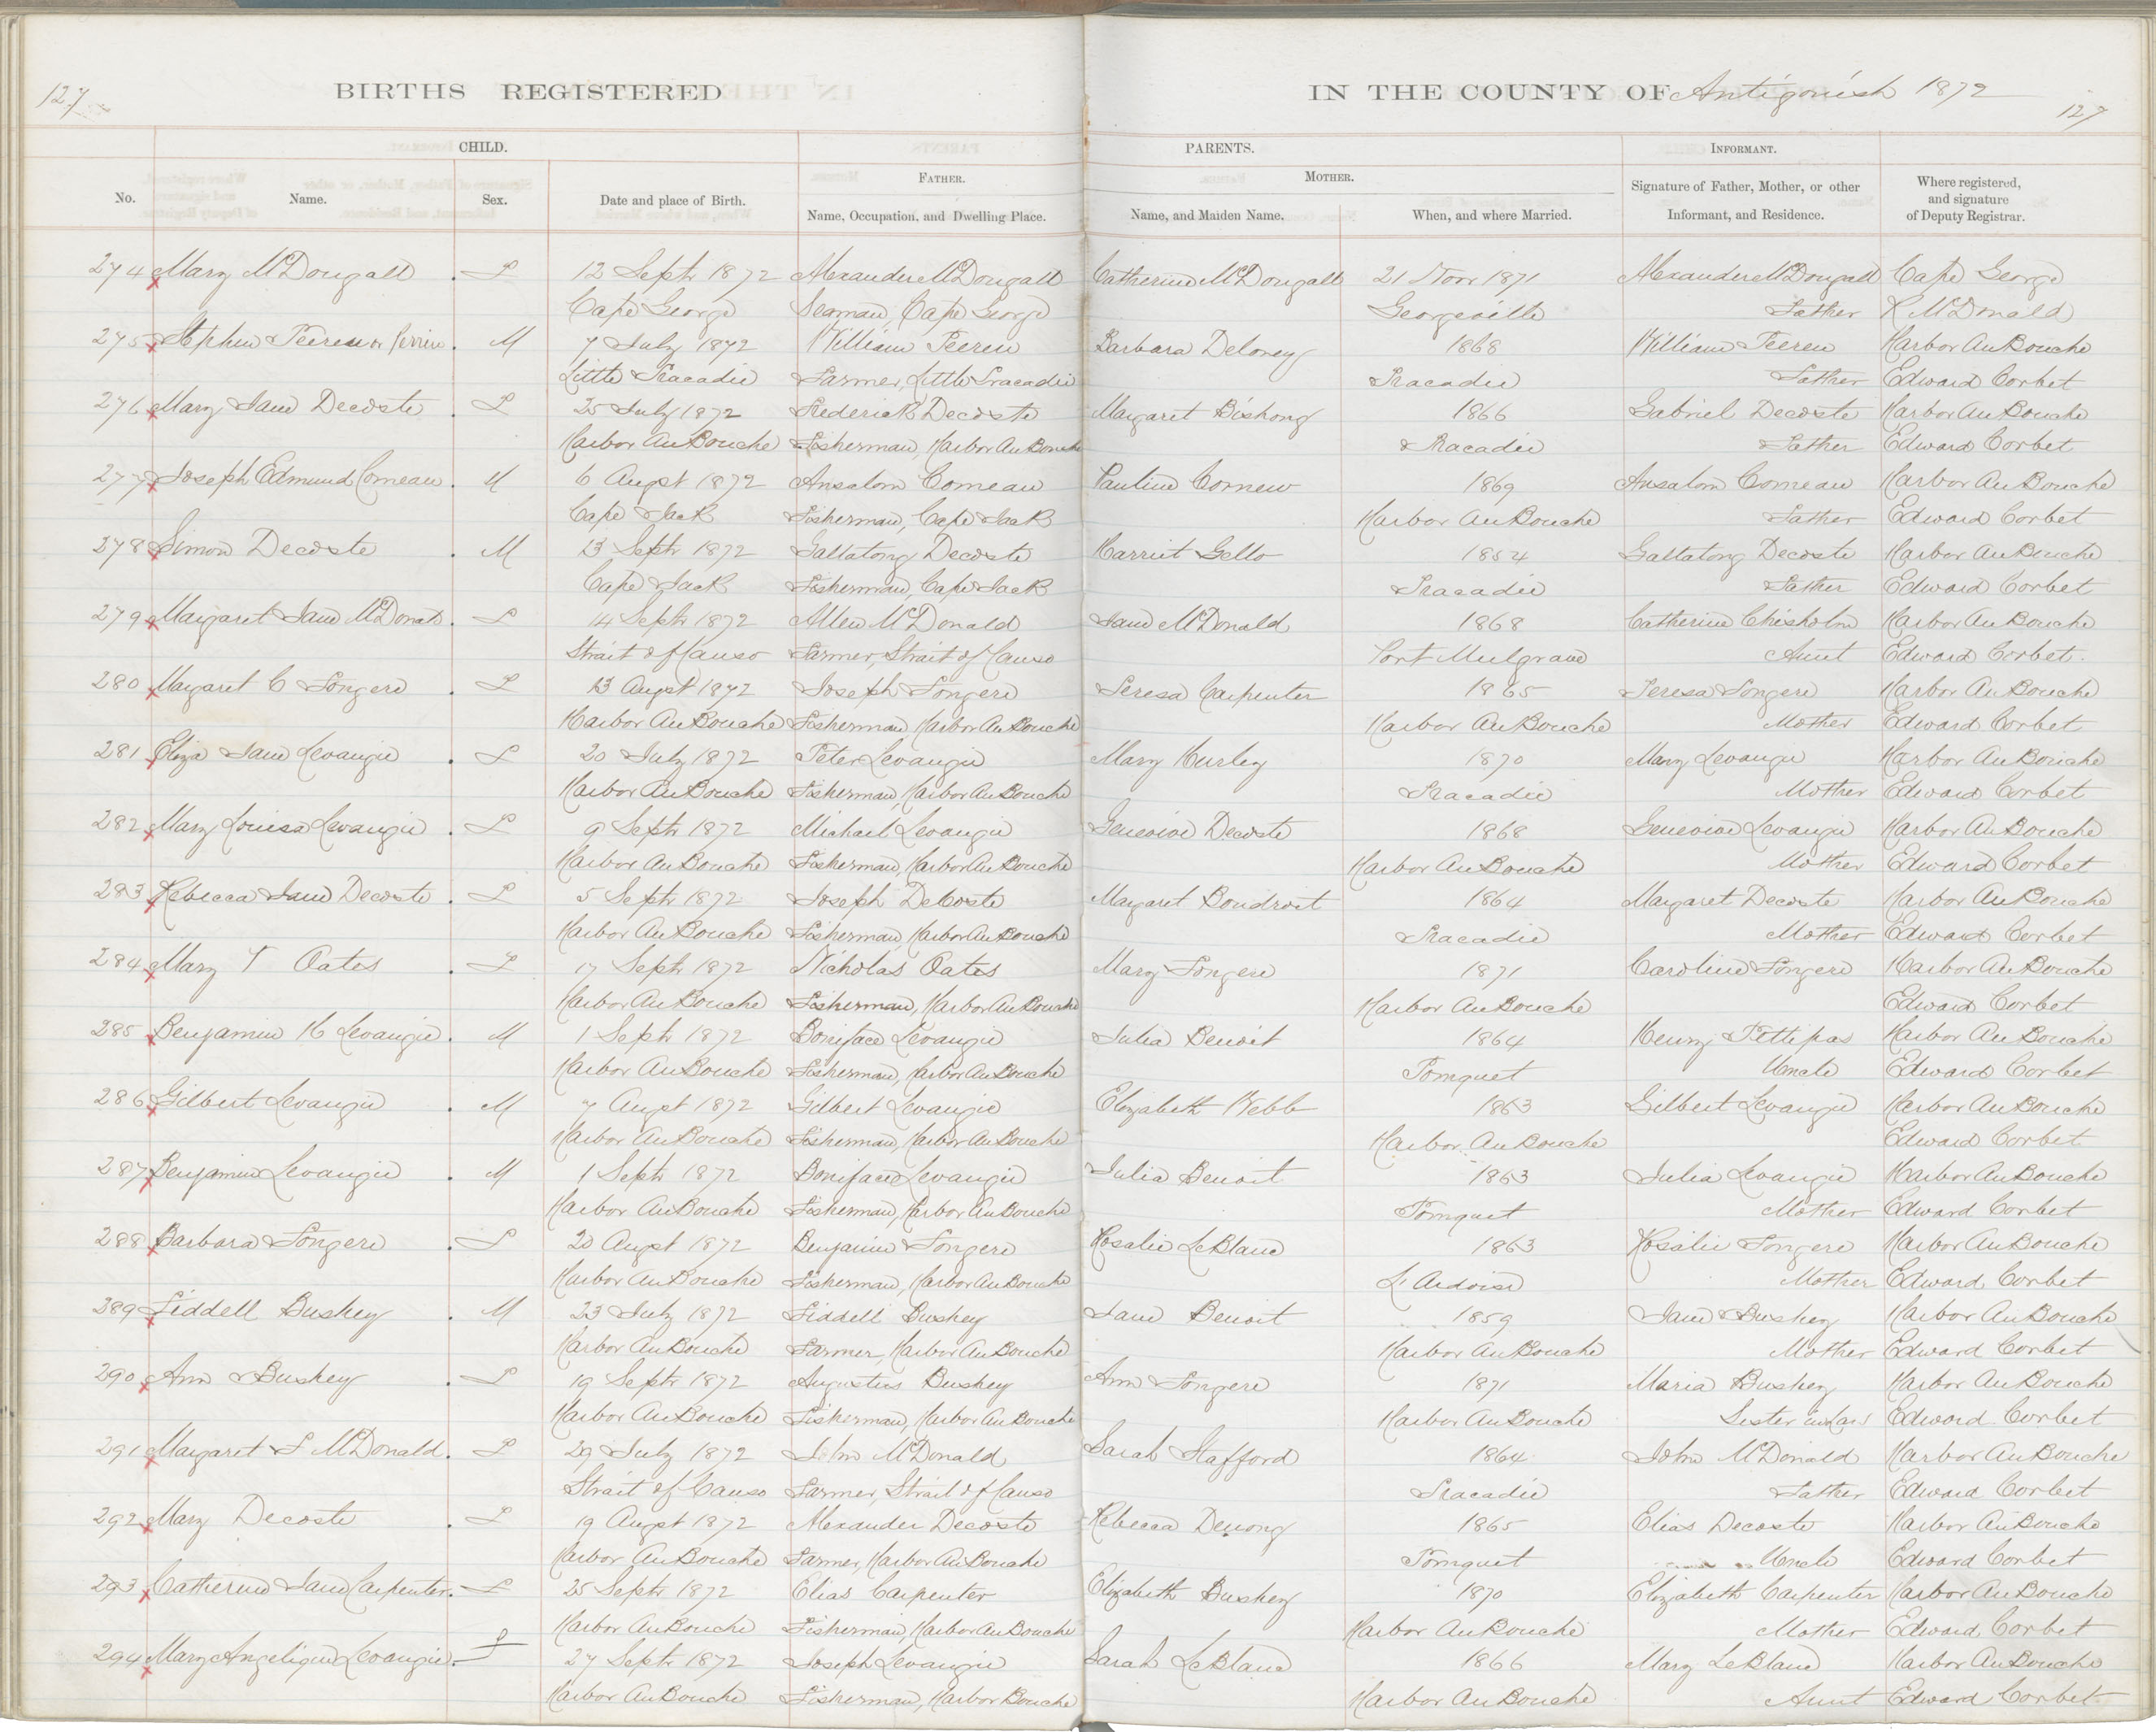 127
BIRTHS REGISTERED
IN THE COUNTY OF Antigonish 1872
127
CHILD.
PARENTS.
INFORMANT.
FATHER.
MOTHER.
No.
Name.
Sex.
Date and place of Birth.
Name, Occupation, and Dwelling Place.
Name, and Maiden Name.
When, and where Married.
Signature of Father, Mother, or other
Informant, and Residence.
Where registered,
and signature
of Deputy Registrar.
274 Mary McDougall F 12 Septr 1872 Alexander McDougall Catherine McDougall 21 Novr 1871 Alexander McDougall Cape George
Cape George Seaman, Cape George Georgeville Father R McDonald
275 Stephen or Perrine M 7 July 1872 William Barbara Deloney 1868 William Harbor Au Bouche
Little Tracadie Farmer, Little Tracadie Tracadie Father Edward Corbet
276 Mary Jane Decoste F 25 July 1872 Frederick Decoste Margaret 1866 Gabriel Decoste Harbor Au Bouche
Harbor Au Bouche Fisherman, Harbor Au Bouche Tracadie Father Edward Corbet
277 Joseph Edmund Comeau M 6 Augst 1872 Ansalom Comeau Pauline Cornew 1869 Ansalom Comeau Harbor Au Bouche
Cape Jack Fisherman, Cape Jack Harbor Au Bouche Father Edward Corbet
278 Simon Decoste M 13 Septr 1872 Decoste Harriet Gello 1854 Decoste Harbor Au Bouche
Cape Jack Fisherman, Cape Jack Tracadie Father Edward Corbet
279 Margaret Jane McDonald F 14 Septr 1872 Allen McDonald Jane McDonald 1868 Catherine Chisholm Harbor Au Bouche
Strait of Canso Farmer, Strait of Canso Port Mulgrave Aunt Edward Corbet
280 Margaret C Fongere F 13 Augst 1872 Joseph Fongere Teresa Carpenter 1865 Teresa Fongere Harbor Au Bouche
Harbor Au Bouche Fisherman, Harbor Au Bouche Harbor Au Bouche Mother Edward Corbet
281 Eliza Jane Levangie F 20 July 1872 Peter Levangie Mary Hurley 1870 Mary Levangie Harbor Au Bouche
Harbor Au Bouche Fisherman, Harbor Au Bouche Tracadie Mother Edward Corbet
282 Mary Louisa Levangie F 9 Septr 1872 Michael Levangie Genevive Decoste 1868 Genevive Levangie Harbor Au Bouche
Harbor Au Bouche Fisherman, Harbor Au Bouche Harbor Au Bouche Mother Edward Corbet
283 Rebecca Jane Decoste F 5 Septr 1872 Joseph DeCoste Margaret Boudroit 1864 Margaret Decoste Harbor Au Bouche
Harbor Au Bouche Fisherman, Harbor Au Bouche Tracadie Mother Edward Corbet
284 Mary T Oates F 17 Septr 1872 Nicholas Oates Mary Fongere 1871 Caroline Fongere Harbor Au Bouche
Harbor Au Bouche Fisherman, Harbor Au Bouche Harbor Au Bouche Edward Corbet
285 Benjamin H Levangie M 1 Septr 1872 Boniface Levangie Julia Benoit 1864 Henry Pettipas Harbor Au Bouche
Harbor Au Bouche Fisherman, Harbor Au Bouche Pomquet Uncle Edward Corbet
286 Gilbert Levangie M 7 Augst 1872 Gilbert Levangie Elizabeth Webb 1863 Gilbert Levangie Harbor Au Bouche
Harbor Au Bouche Fisherman, Harbor Au Bouche Harbor Au Bouche Edward Corbet
287 Benjamin Levangie M 1 Septr 1872 Boniface Levangie Julia Benoit 1863 Julia Levangie Harbor Au Bouche
Harbor Au Bouche Fisherman, Harbor Au Bouche Pomquet Mother Edward Corbet
288 Barbara Fongere F 20 Augst 1872 Benjamin Fongere Rosalie LeBlanc 1863 Rosalie Fongere Harbor Au Bouche
Harbor Au Bouche Fisherman, Harbor Au Bouche L'Ardoise Mother Edward Corbet
289 Fiddell Bushey M 23 July 1872 Fiddell Bushey Jane Benoit 1859 Jane Bushey Harbor Au Bouche
Harbor Au Bouche Farmer, Harbor Au Bouche Harbor Au Bouche Mother Edward Corbet
290 Ann Bushey F 19 Septr 1872 Augustus Bushey Ann Fongere 1871 Maria Bushey Harbor Au Bouche
Harbor Au Bouche Fisherman, Harbor Au Bouche Harbor Au Bouche Sister in Law Edward Corbet
291 Margaret F McDonald F 29 July 1872 John McDonald Sarah Stafford 1864 John McDonald Harbor Au Bouche
Strait of Canso Farmer, Strait of Canso Tracadie Father Edward Corbet
292 Mary Decoste F 19 Augst 1872 Alexander Decoste Rebecca Denong 1865 Elias Decoste Harbor Au Bouche
Harbor Au Bouche Farmer, Harbor Au Bouche Pomquet Uncle Edward Corbet
293 Catherine Jane Carpenter F 25 Septr 1872 Elias Carpenter Elizabeth Bushey 1870 Elizabeth Carpenter Harbor Au Bouche
Harbor Au Bouche Fisherman, Harbor Au Bouche Harbor Au Bouche Mother Edward Corbet
294 Mary Angelique Levangie F 27 Septr 1872 Joseph Levangie Sarah LeBlanc 1866 Mary LeBlanc Harbor Au Bouche
Harbor Au Bouche Fisherman, Harbor Bouche Harbor Au Bouche Aunt Edward Corbet